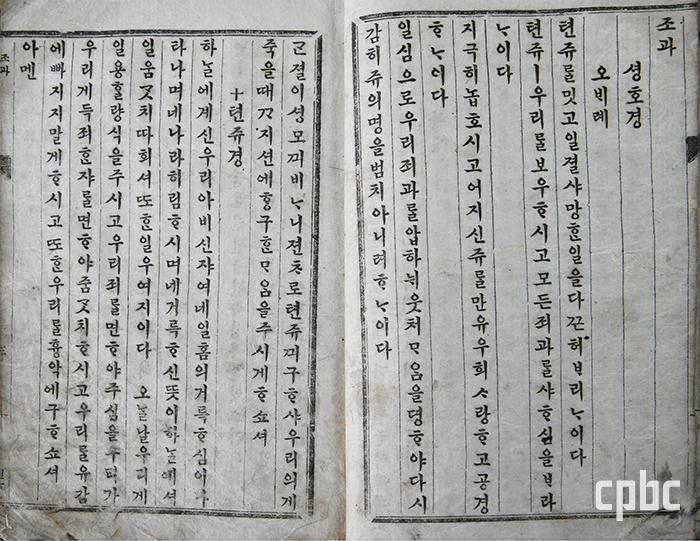 조과
셩호경
오ᄇᆡ례
텬쥬ᄅᆞᆯ밋고일졀샤망ᄒᆞᆫ일을다ᄭᅳᆫ허ᄇᆞ리ᄂᆞ이다
텬쥬ㅣ우리ᄅᆞᆯ보우ᄒᆞ시고모든죄과ᄅᆞᆯ샤ᄒᆞ심을ᄇᆞ라
ᄂᆞ이다
지극히놉호시고어지신쥬ᄅᆞᆯ만유우희ᄉᆞ랑ᄒᆞ고공경
ᄒᆞᄂᆞ이다
일심으로우리죄과ᄅᆞᆯ압하뉘웃처ᄆᆞ음을뎡ᄒᆞ야다시
감히쥬의명을범치아니려ᄒᆞᄂᆞ이다
ᄀᆞᆫ졀이셩모ᄭᅴ비ᄂᆞ니젼ᄎᆞ로텬쥬ᄭᅴ구ᄒᆞ샤우리의게
죽을ᄯᅢᄭᆞ지션에ᄒᆞᆼ구ᄒᆞᆫᄆᆞ음을주시게ᄒᆞ쇼셔
十텬쥬경
하ᄂᆞᆯ에계신우리아비신쟈여네일홈의거륵ᄒᆞ심이나
타나며네나라히림ᄒᆞ시며네거륵ᄒᆞ신ᄯᅳᆺ이하ᄂᆞᆯ에셔
일움ᄀᆞᆺ치ᄯᅡ희셔ᄯᅩᄒᆞᆫ일우여지이다 오ᄂᆞᆯ날우리게
일용ᄒᆞᆯ량식을주시고우리죄ᄅᆞᆯ면ᄒᆞ야주심을우리가
우리게득죄ᄒᆞᆫ쟈ᄅᆞᆯ면ᄒᆞ야줌ᄀᆞᆺ치ᄒᆞ시고우리ᄅᆞᆯ유감
에ᄲᅡ지지말게ᄒᆞ시고ᄯᅩᄒᆞᆫ우리ᄅᆞᆯ흉악에구ᄒᆞ쇼셔
아멘
조과
cpbc